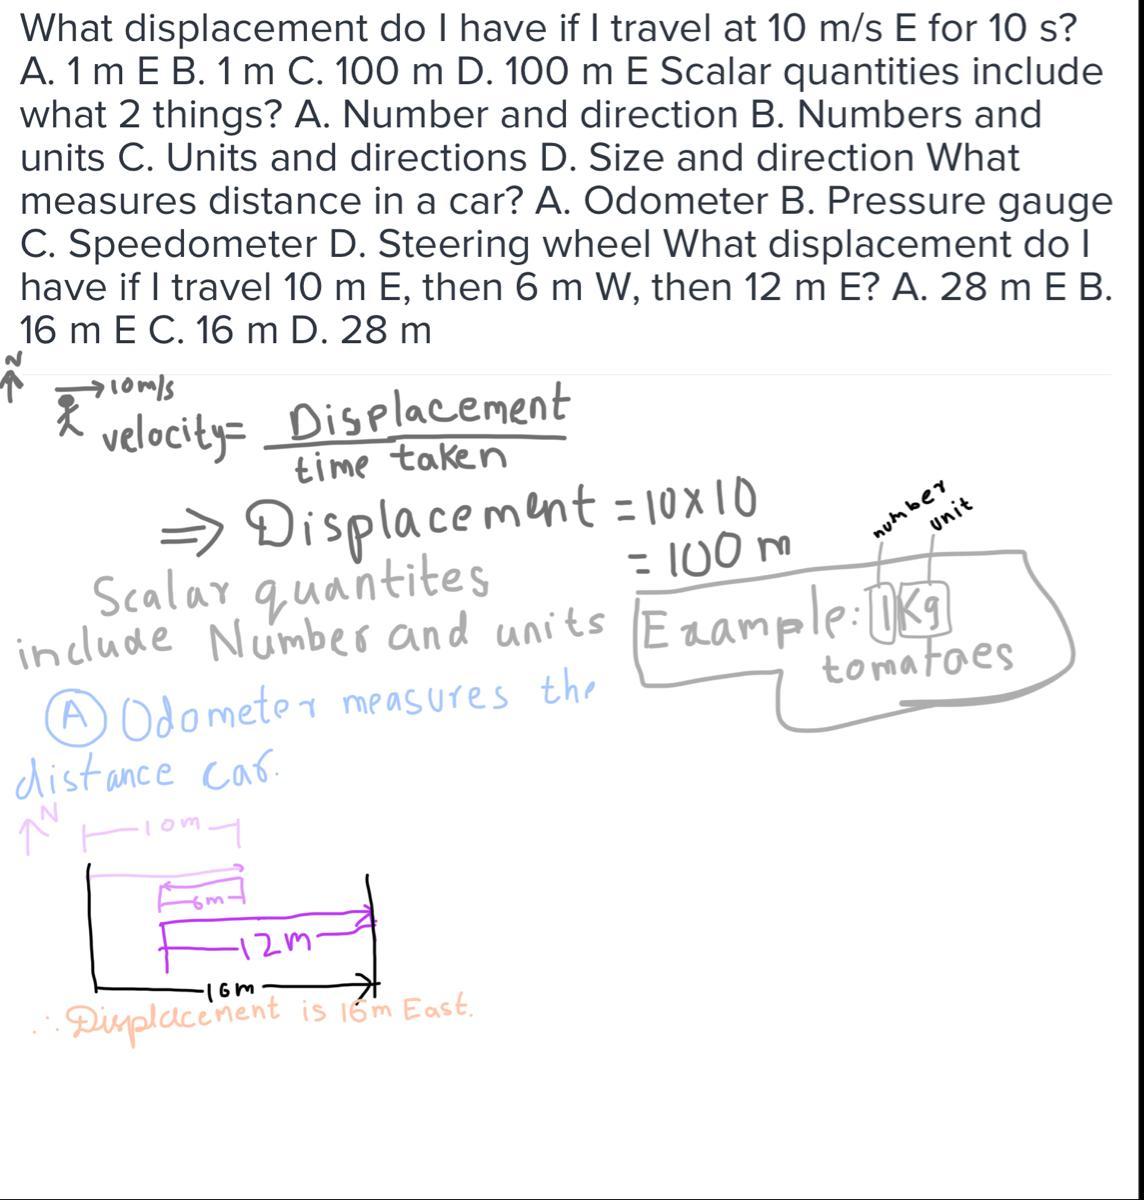 What displacement do I have if I travel at 10 m/s E for 10 s?
A. 1 m E B. 1 m C. 100 m D. 100 m E Scalar quantities include
what 2 things? A. Number and direction B. Numbers and
units C. Units and directions D. Size and direction What
measures distance in a car? A. Odometer B. Pressure gauge
C. Speedometer D. Steering wheel What displacement do I
have if I travel 10 m E, then 6 m W, then 12 m E? A. 28 m E B.
16 m E C. 16 m D. 28 m
N
10m/s
velocity= Displacement
time taken
⇒ Displacement = 10x10
= 100 m
number
unit
Scalar quantites
include Number and units
Example: 1 Kg
tomataes
A Odometer measures the
distance car.
N
10m
6m
12m
16m
∴ Displacement is 16m East.